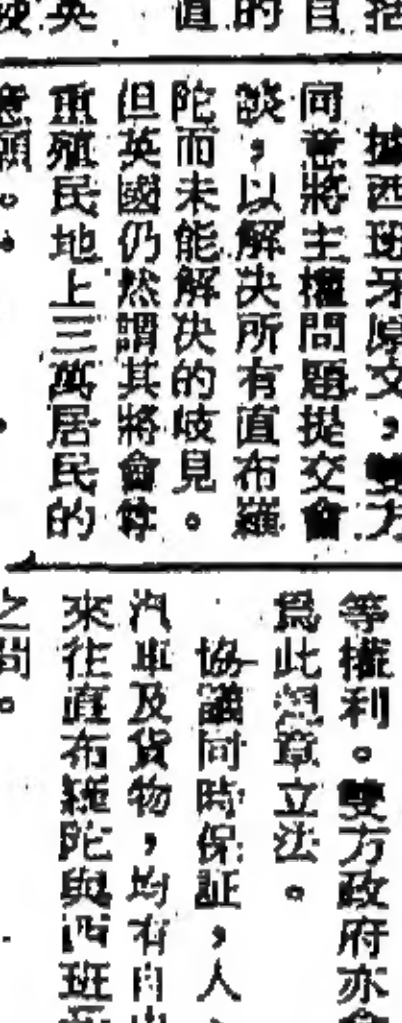 括
自
的
直
英
據西班牙原文，雙方
同意將主權問題提交會
談，以解决所有直布羅
陀而未能解决的岐見。
但英國仍然謂其將會尊
重殖民地上三萬居民的
意願。
等權利。雙方政府亦會
爲此憲章立法。
協議同時保証，人、
汽車及貨物，均有自由
來往直布羅陀與西班牙
之間。